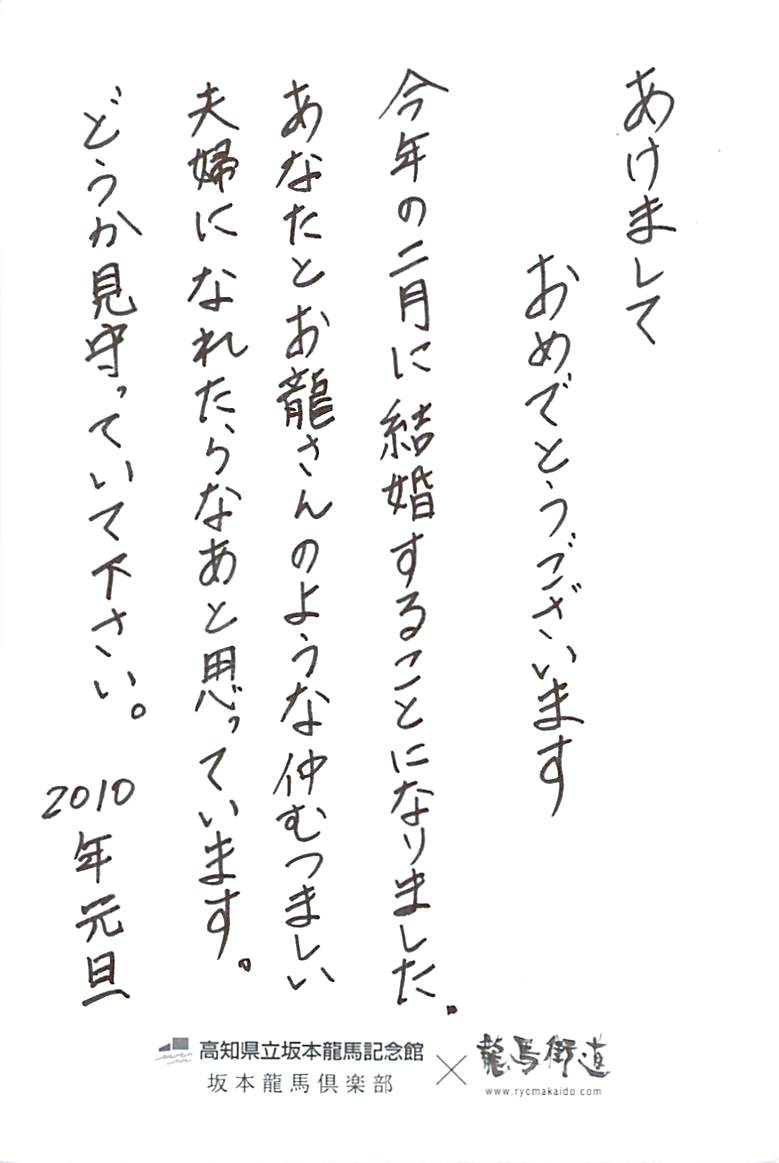 あけまして
おめでとうございます
今年の二月に結婚することになりました。
あなたとお龍さんのような仲むつましい
夫婦になれたらなあと思っています。
どうか見守っていて下さい。
2010年元旦
高知県立坂本龍馬記念館
坂本龍馬倶楽部
×
龍馬街道
www.ryomakaido.com